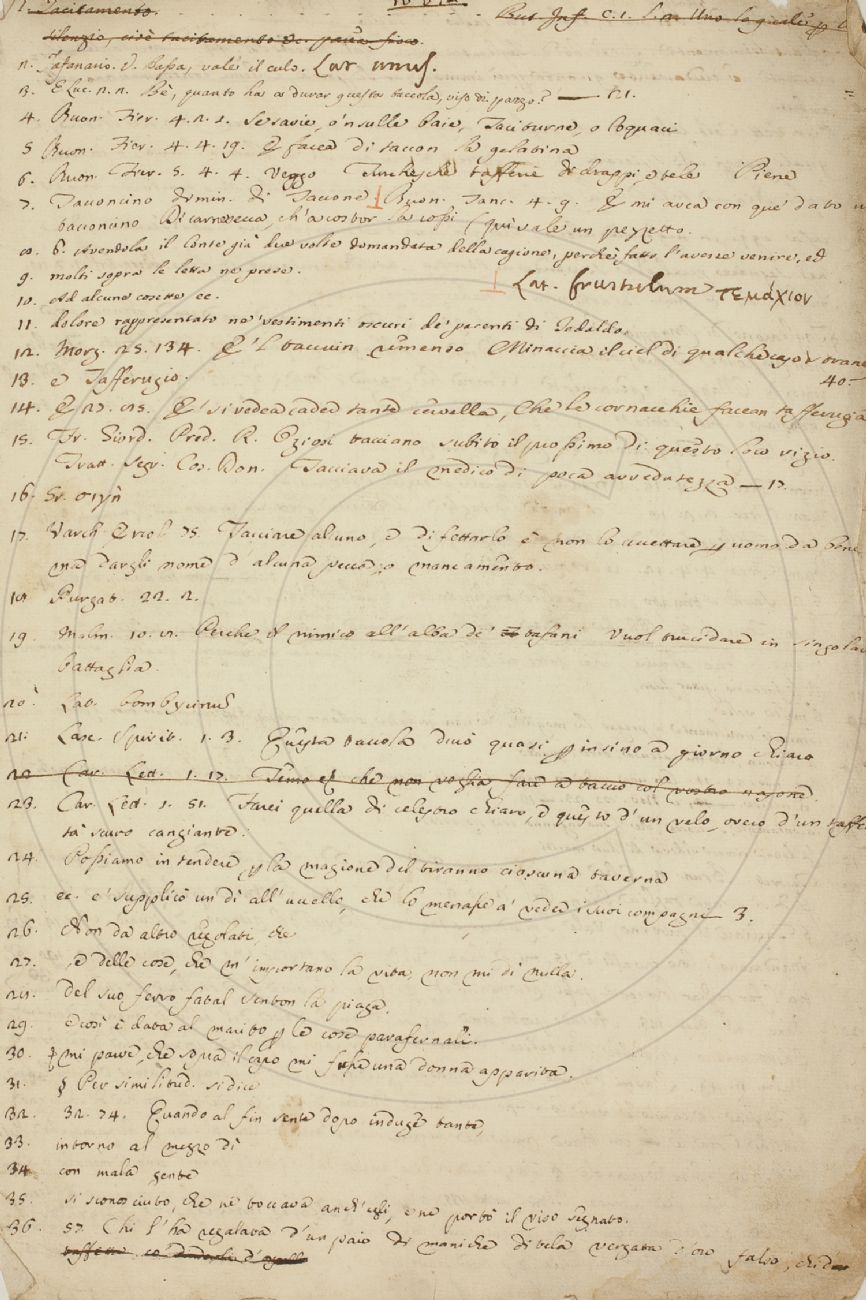 1. Tacitamento.
But. Inf. C. 1. S. in Uno la quale p
silenzio, cioè tacitamento
2. Tafanario. S. Bassa, vale il culo. Lat anus.
3. E Luc. n. n. Bè, quanto ha a durar questa taccola, viso di pazzo? — 21.
4. Buon. Fier. 4. 2. 1. Se savie, o 'nsulle baie, Taciturne, o loquaci
5 Buon. Fier. 4. 4. 19. E facea di taccon la gelatina
6. Buon. Fier. 5. 4. 4. Veggo Turchesche tafferie di drappi, e tele Piene
7. Tacconcino dimin. di Taccone Buon. Tanc. 4. 9. E mi avea con que' dato u
tacconcino Di carnesecca ch'a costor (quì vale un pezzetto.
8. 6. Avendola il Conte già due volte domandata della cagione, perchè fatto l'avesse venire, ed
9. molti sopra le letta ne prese.
Lat. frustulum τεμάχιον
10. Ad alcune cosette ec.
11. dolore rappresentato ne' vestimenti oscuri de' parenti di Tedaldo.
12. Morg. 25. 134. E 'l taccuin Minaccia il ciel di qualche caso strano
40.
13. e Tafferugio.
14. E 27. E' si vedea cader tante cervella, Che le cornacchie facean tafferugia
15. Fr. Giord. Pred. R. Oziosi tacciano subito il prossimo di questo loro vizio.
Tratt. Segr. Cos. Don. Tacciava il medico di poca avvedutezza — 17.
16.
17. Varch. Ercol. 75. Tacciare alcuno, e difettarlo è non lo accettare p uomo da bene
ma dargli nome d'alcuna pecca, o mancamento.
18 Purgat. 22. 2.
19. Malm. 10. Perche il nimico all'alba de' tafani Vuol trucidare in singolar
battaglia.
20. Lat. bombycinus
21. Lasc. Spirit. 1. 3. Questa taccola durò quasi p insino a giorno chiaro
22 Car. Lett. 1. 17. Temo che non voglia fare a taccio col vostro
23. Car. Lett. 1. 51. Farei quella di celestro chiaro, e questo d'un velo, overo d'un taffe
tà scuro cangiante.
24. Possiamo intendere p la magione del tiranno ciascuna taverna
25. ec. e supplicò un dì all'uccello, che lo menasse a' veder i suoi compagni 3.
26. Non da altro regolati, che
27. e delle cose, che m'importano la vita, non mi dì nulla.
28. del suo ferro fatal senton la piaga,
29. e così è data al marito p le cose parafernali.
30. mi parve, che sopra il capo mi fusse una donna apparita.
31. § Per similitud. si dice
32. 32. 74. Quando al fin sente dopo indugè tante,
33. intorno al mezzo dì
34 con mala gente
35. sì sconosciuto, che ne toccava anch'egli, e ne portò il viso segnato.
36. 57 Chi l'ha regalava d'un paio di maniche di tela vergata d'oro falso, chi d
taffetta